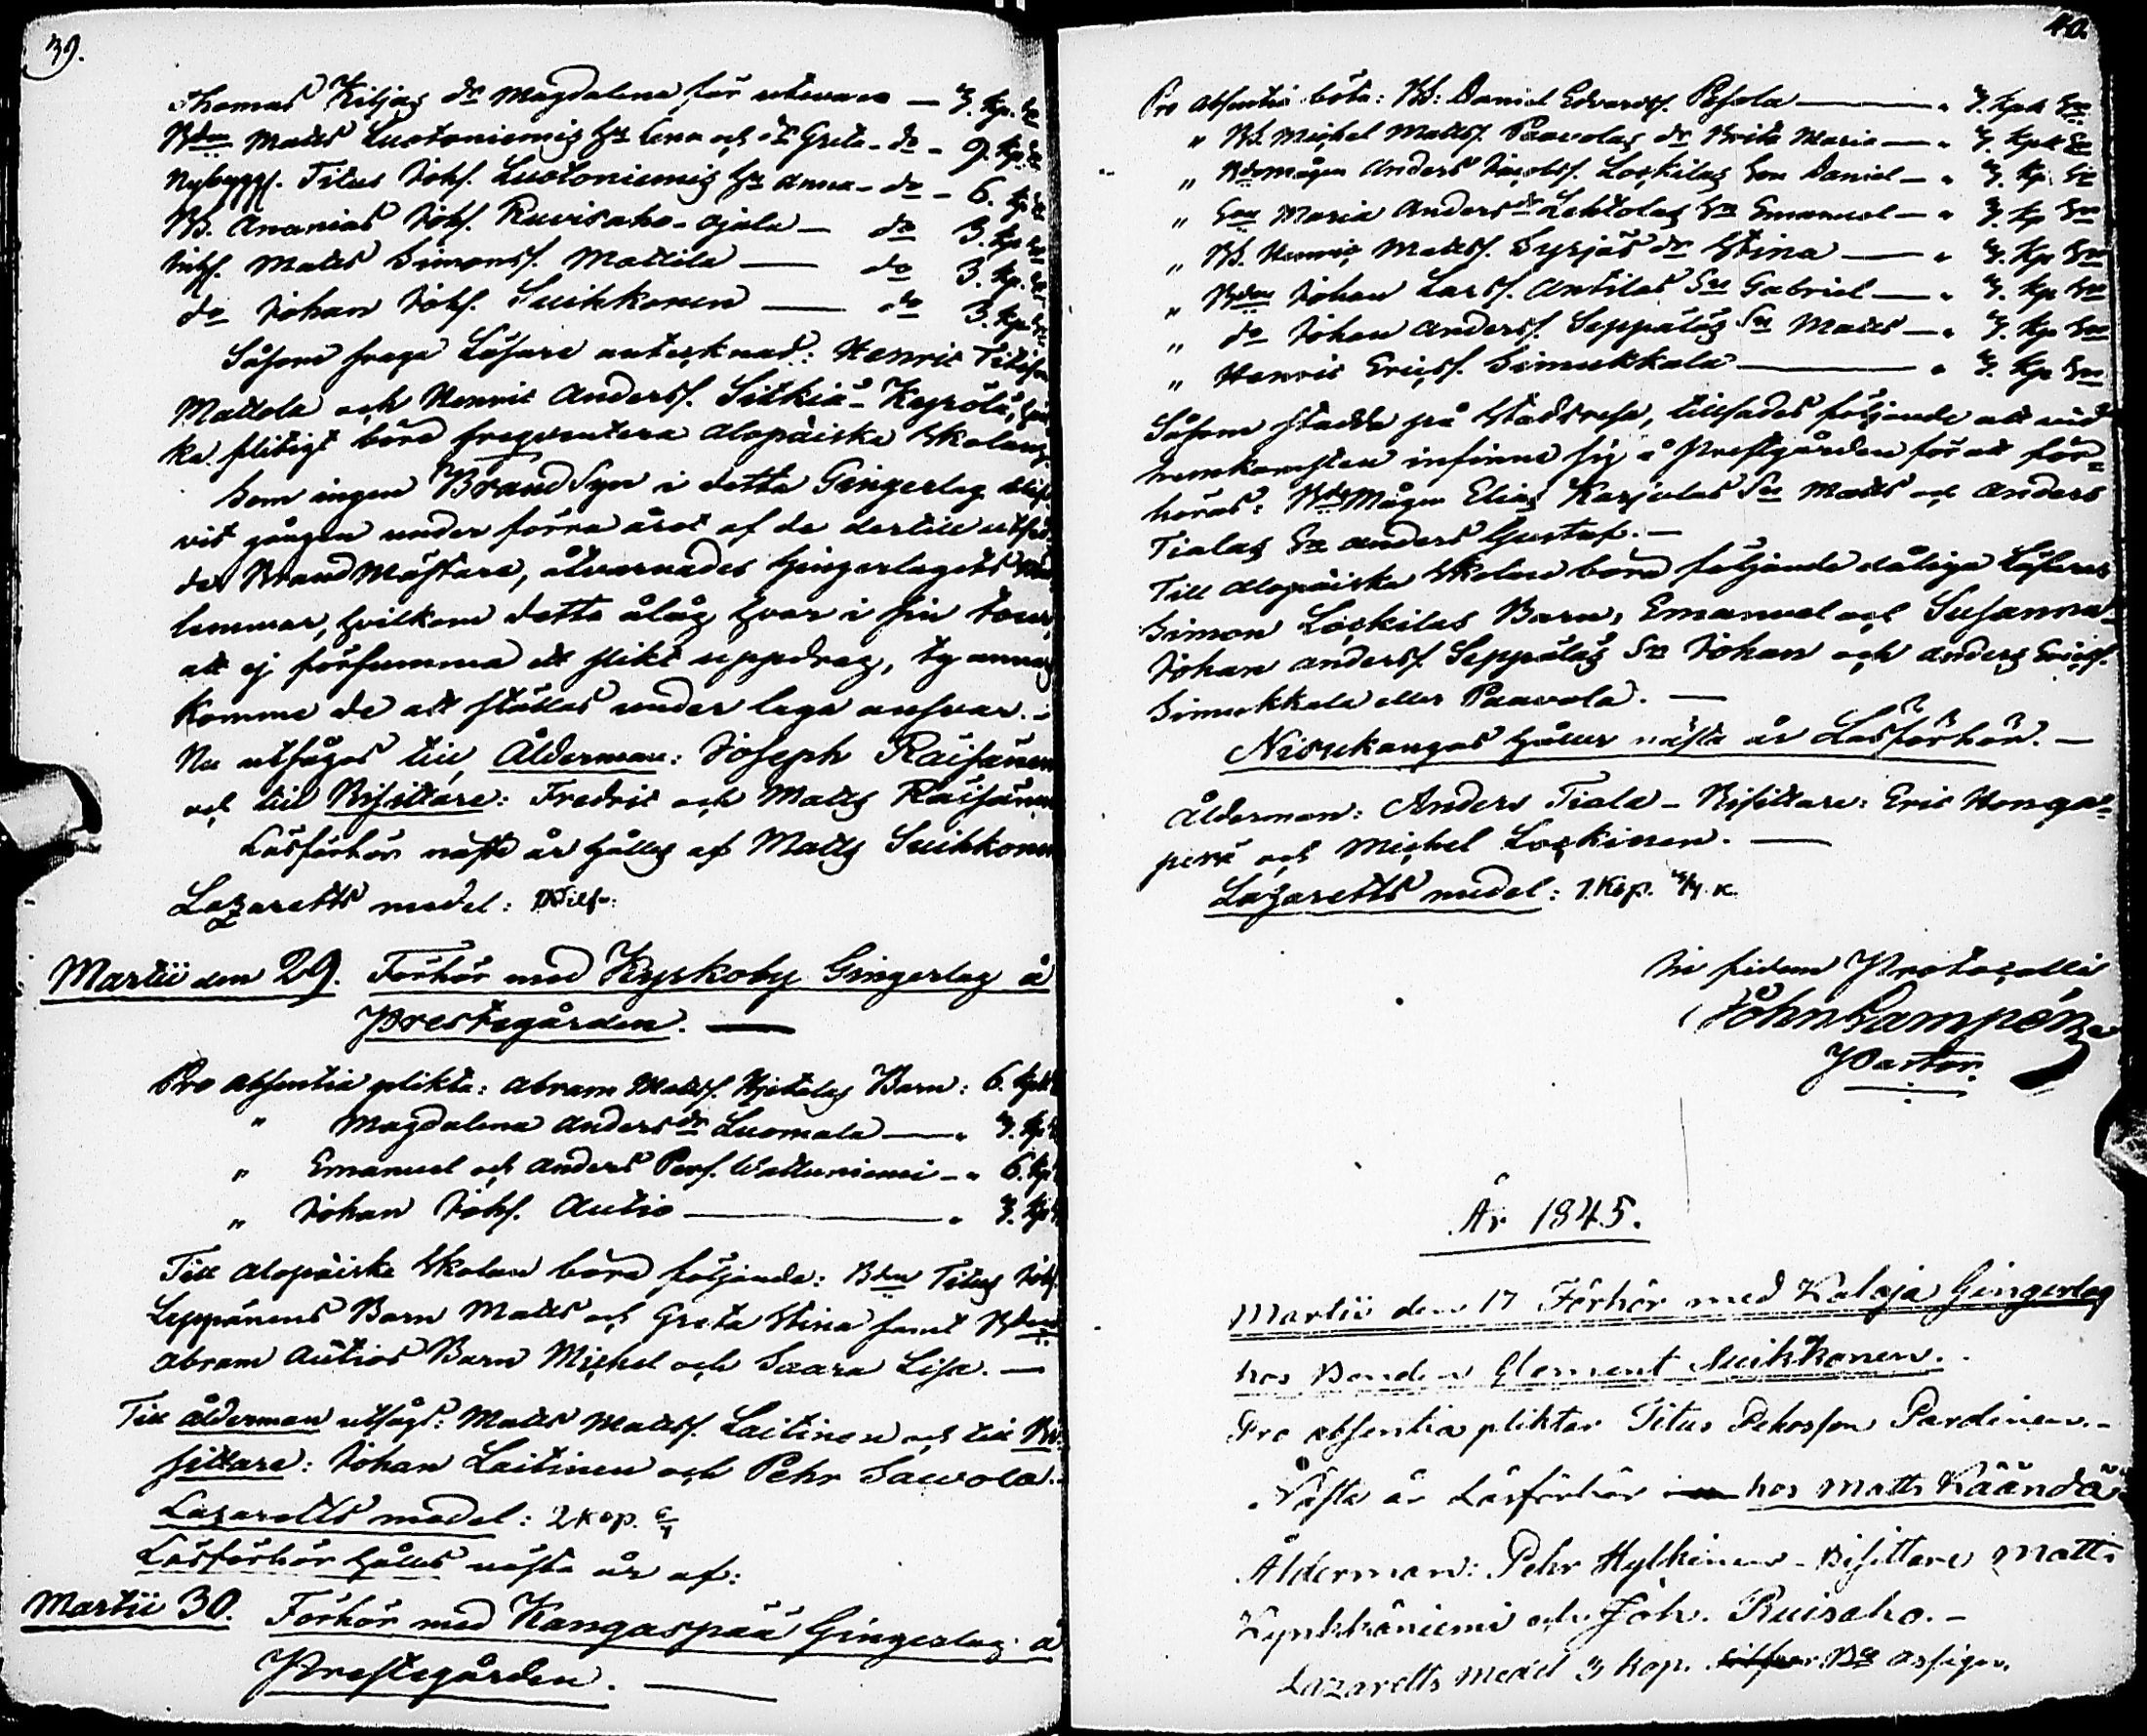 39.
Thomas Kiljas dr Magdalena för utevaro — 3. kp. Sr
Bdn Matts Luotoniemis hu Lena och dr Greta - do - 9. kp. Sr
Nybyggs. Titus Johs. Luotoniemis hu Anna - do - 6. kp Sr
Bs. Ananias Johs. Ruvisaho-Ojala — do 3. kp Sr
Inhs. Matts Simonss. Mattila — do 3. kp. Sr
do Johan Johs. Suikkonen — do 3. kp. Sr
Såsom svaga Läsare antecknad: Henric Titisson
Mattola och Henric Anderss. Sitkiä-Kyrölä, hvil
ka flitigt böra freqventera Alopäiska Skolan.
Som ingen Brand Syn i detta Gingerlag blif
vit gången under förra året af de dertill utsed
de Brand Mästare, åtvarnades Gingerlagets
lemmar, hvilkom detta ålåg hvar i sin tour,
att ej försumma ett slikt uppdrag, ty annars
komme de att ställas under laga ansvar. -
Nu utsågos till Ålderman: Joseph Räisänen
och till Bisittare: Fredric och Matts Räisänen
Läsförhör nästa år hålles af Matts Suikkonen
Lazaretts medel:
Martii den 29. Förhör med Kyrkoby Gingerlag å
Prestegården. —
Pro absentia plikta: Abram Matss. Hjetalas Barn: 6. kp
" Magdalena Andersdr Luomala — " 3. kp
" Emanuel och Anders Pers. Wattuniemi - " 6. kp
" Johan Johs. Autio — " 3. kp
Till Alopäiska Skolan böra följande: Bdn Titus Johs.
Leppänens Barn Matts och Greta Stina samt Bdn
Abram Autios Barn Michel och Saara Lisa. —
Till Ålderman utsågs: Matts Matss. Laitinen och till Bi-
sittare: Johan Laitinen och Pehr Sawola.
Lazaretts medel: 2 kop.
Läsförhör hålles nästa år af:
Martii 30. Förhör med Kangaspää Gingerlag å
Prestegården. —
40.
Pro absentia böta: Bs: Daniel Edvardss. Pesola — " 3. kpk Sr
" Bs. Michel Matss. Paavolas dr Brita Maria — " 3. kpk Sr
" Bdsmågen Anders Jacobss. Lockilas Son Daniel — " 3. kp. Sr
" Enk Maria Andersdr Lehtolas Sn Emanuel — " 3. kp Sr
" Bs. Henric Matss. Syrjäs dr Stina — " 3. kp Sr
" Bdn Johan Larss. Antilas Sn Gabriel — " 3. kp Sr
" do Johan Anderss. Seppäläs Sn Matts — " 3. kp Sr
" Henric Ericss. Simukkala — " 3. kp Sr
Såsom stadde på Stadsresa, tillsades följande att vid
hemkomsten infinna sig å Prestgården för att för-
höras: Bds Mågen Elias Karjulas Sn Matts och Anders
Tialas Sn Anders Gustaf. —
Till Alopäiska Skolan böra följande dåliga Läsare:
Simon Lockilas Barn, Emanuel och Susanna
Johan Anderss. Seppäläs Sn Johan och Anders Ericss.
Simukkala eller Paavola. —
Niskukangas håller nästa år Läsförhör. —
Ålderman: Anders Tiala - Bisittare: Eric Honga-
perä och Michel Lockinen. —
Lazaretts medel: 1. Kop.
In fidem Protocolli
John Lampén
Pastor.
År 1845.
Martii den 17 Förhör med Kalaja Gingerlag
hos Bonden Clement Suikkonen.
Pro absentia pliktar Titus Pekosson Pardinen. -
Nästa år Läsförhör hos Matts Kääntä
Ålderman: Pehr Hylkinen - Bisittare Matts
Kynkkäniemi och Joh. Ruisaho. -
Lazaretts Medel 3 kop. Bco Assign.